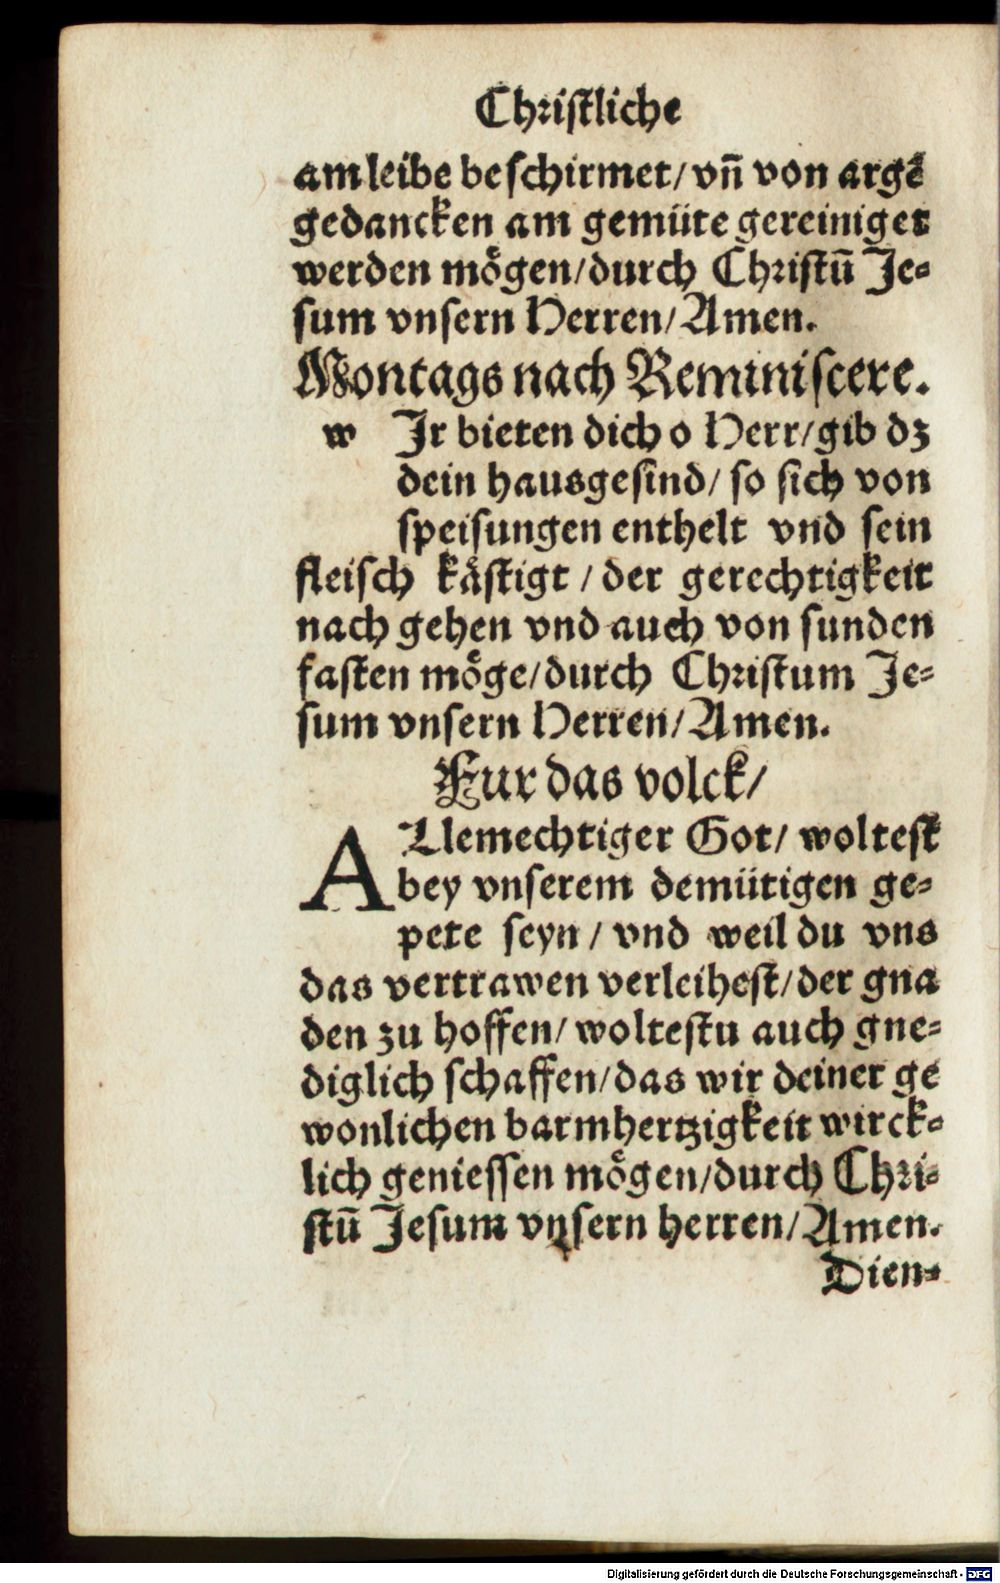 Christliche
am leibe beschirmet/ vn̄ von argē
gedancken am gemüte gereiniget
werden mögen/durch Christū Je-
sum vnsern Herren/Amen.
Montags nach Reminiscere.
w Jr bieten dich o Herr/gib dz
dein hausgesind/ so sich von
speisungen enthelt vnd sein
fleisch kästigt / der gerechtigkeit
nach gehen vnd auch von sunden
fasten möge/durch Christum Je-
sum vnsern Herren/Amen.
Fur das volck/
ALlemechtiger Got/ woltest
bey vnserem demütigen ge-
pete seyn / vnd weil du vns
das vertrawen verleihest/der gna
den zu hoffen/ woltestu auch gne-
diglich schaffen/das wir deiner ge
wonlichen barmhertzigkeit wirck-
lich geniessen mögen/durch Chri-
stū Jesum vnsern herren/Amen.
Dien-
Digitalisierung gefördert durch die Deutsche Forschungsgemeinschaft - DFG